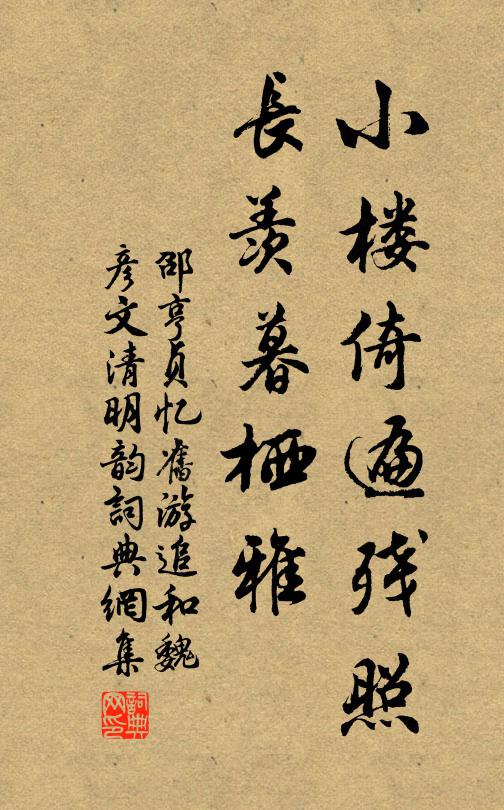 小楼倚遍残照
長羨暮栖雅
邵亨貞忆舊游追和魏
彦文清明韵詞典網集
詞典
网印